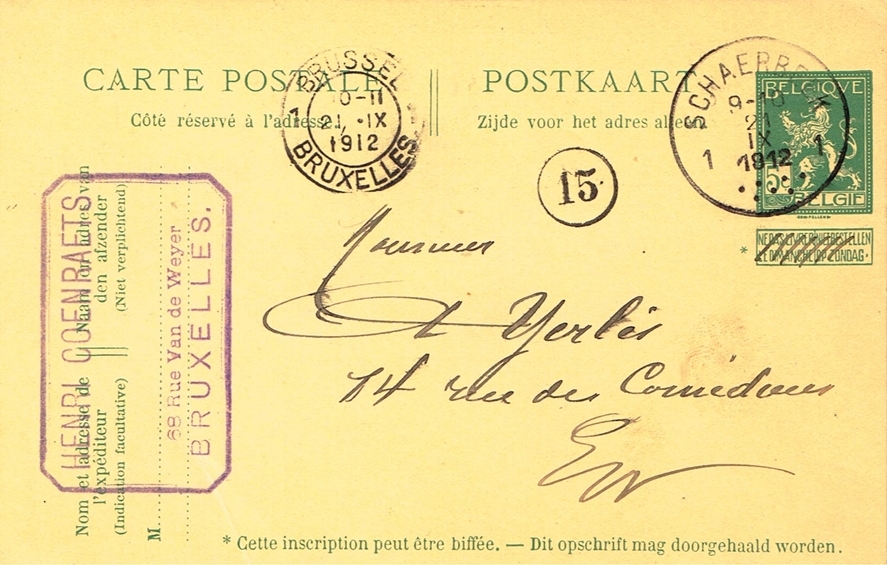 CARTE POSTALE
POSTKAART
Côté réservé à l'adresse.
Zijde voor het adres alleen.
BRUSSEL
10-11
21 IX
1912
1
BRUXELLES
SCHAERBEEK
9-10
21
IX
1912
1 1
BELGIQUE
5
BELGIË
15
NE PAS LIVRER
NIET BESTELLEN
LE DIMANCHE
OP ZONDAG.
*
Monsieur
A Yerlès
14 rue des Comédiens
EV
HENRI COENRAETS
68 Rue Van de Weyer
BRUXELLES.
Naam en adres van
den afzender
(Niet verplichtend)
Nom et adresse de
l'expéditeur
(Indication facultative)
M
* Cette inscription peut être biffée. — Dit opschrift mag doorgehaald worden.